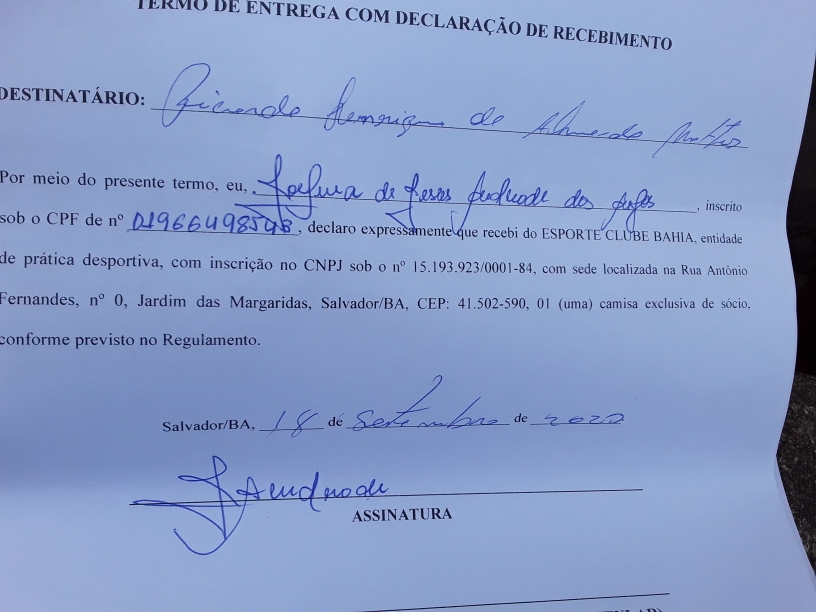 TERMO DE ENTREGA COM DECLARAÇÃO DE RECEBIMENTO
DESTINATÁRIO: Ricardo Henrique de Almeida Mattos
Por meio do presente termo, eu, Joelma de Jesus Andrade dos Anjos, inscrito
sob o CPF de nº 01966498548, declaro expressamente que recebi do ESPORTE CLUBE BAHIA, entidade
de prática desportiva, com inscrição no CNPJ sob o nº 15.193.923/0001-84, com sede localizada na Rua Antônio
Fernandes, nº 0, Jardim das Margaridas, Salvador/BA, CEP: 41.502-590, 01 (uma) camisa exclusiva de sócio,
conforme previsto no Regulamento.
Salvador/BA, 18 de Setembro de 2020
JAndrade
ASSINATURA